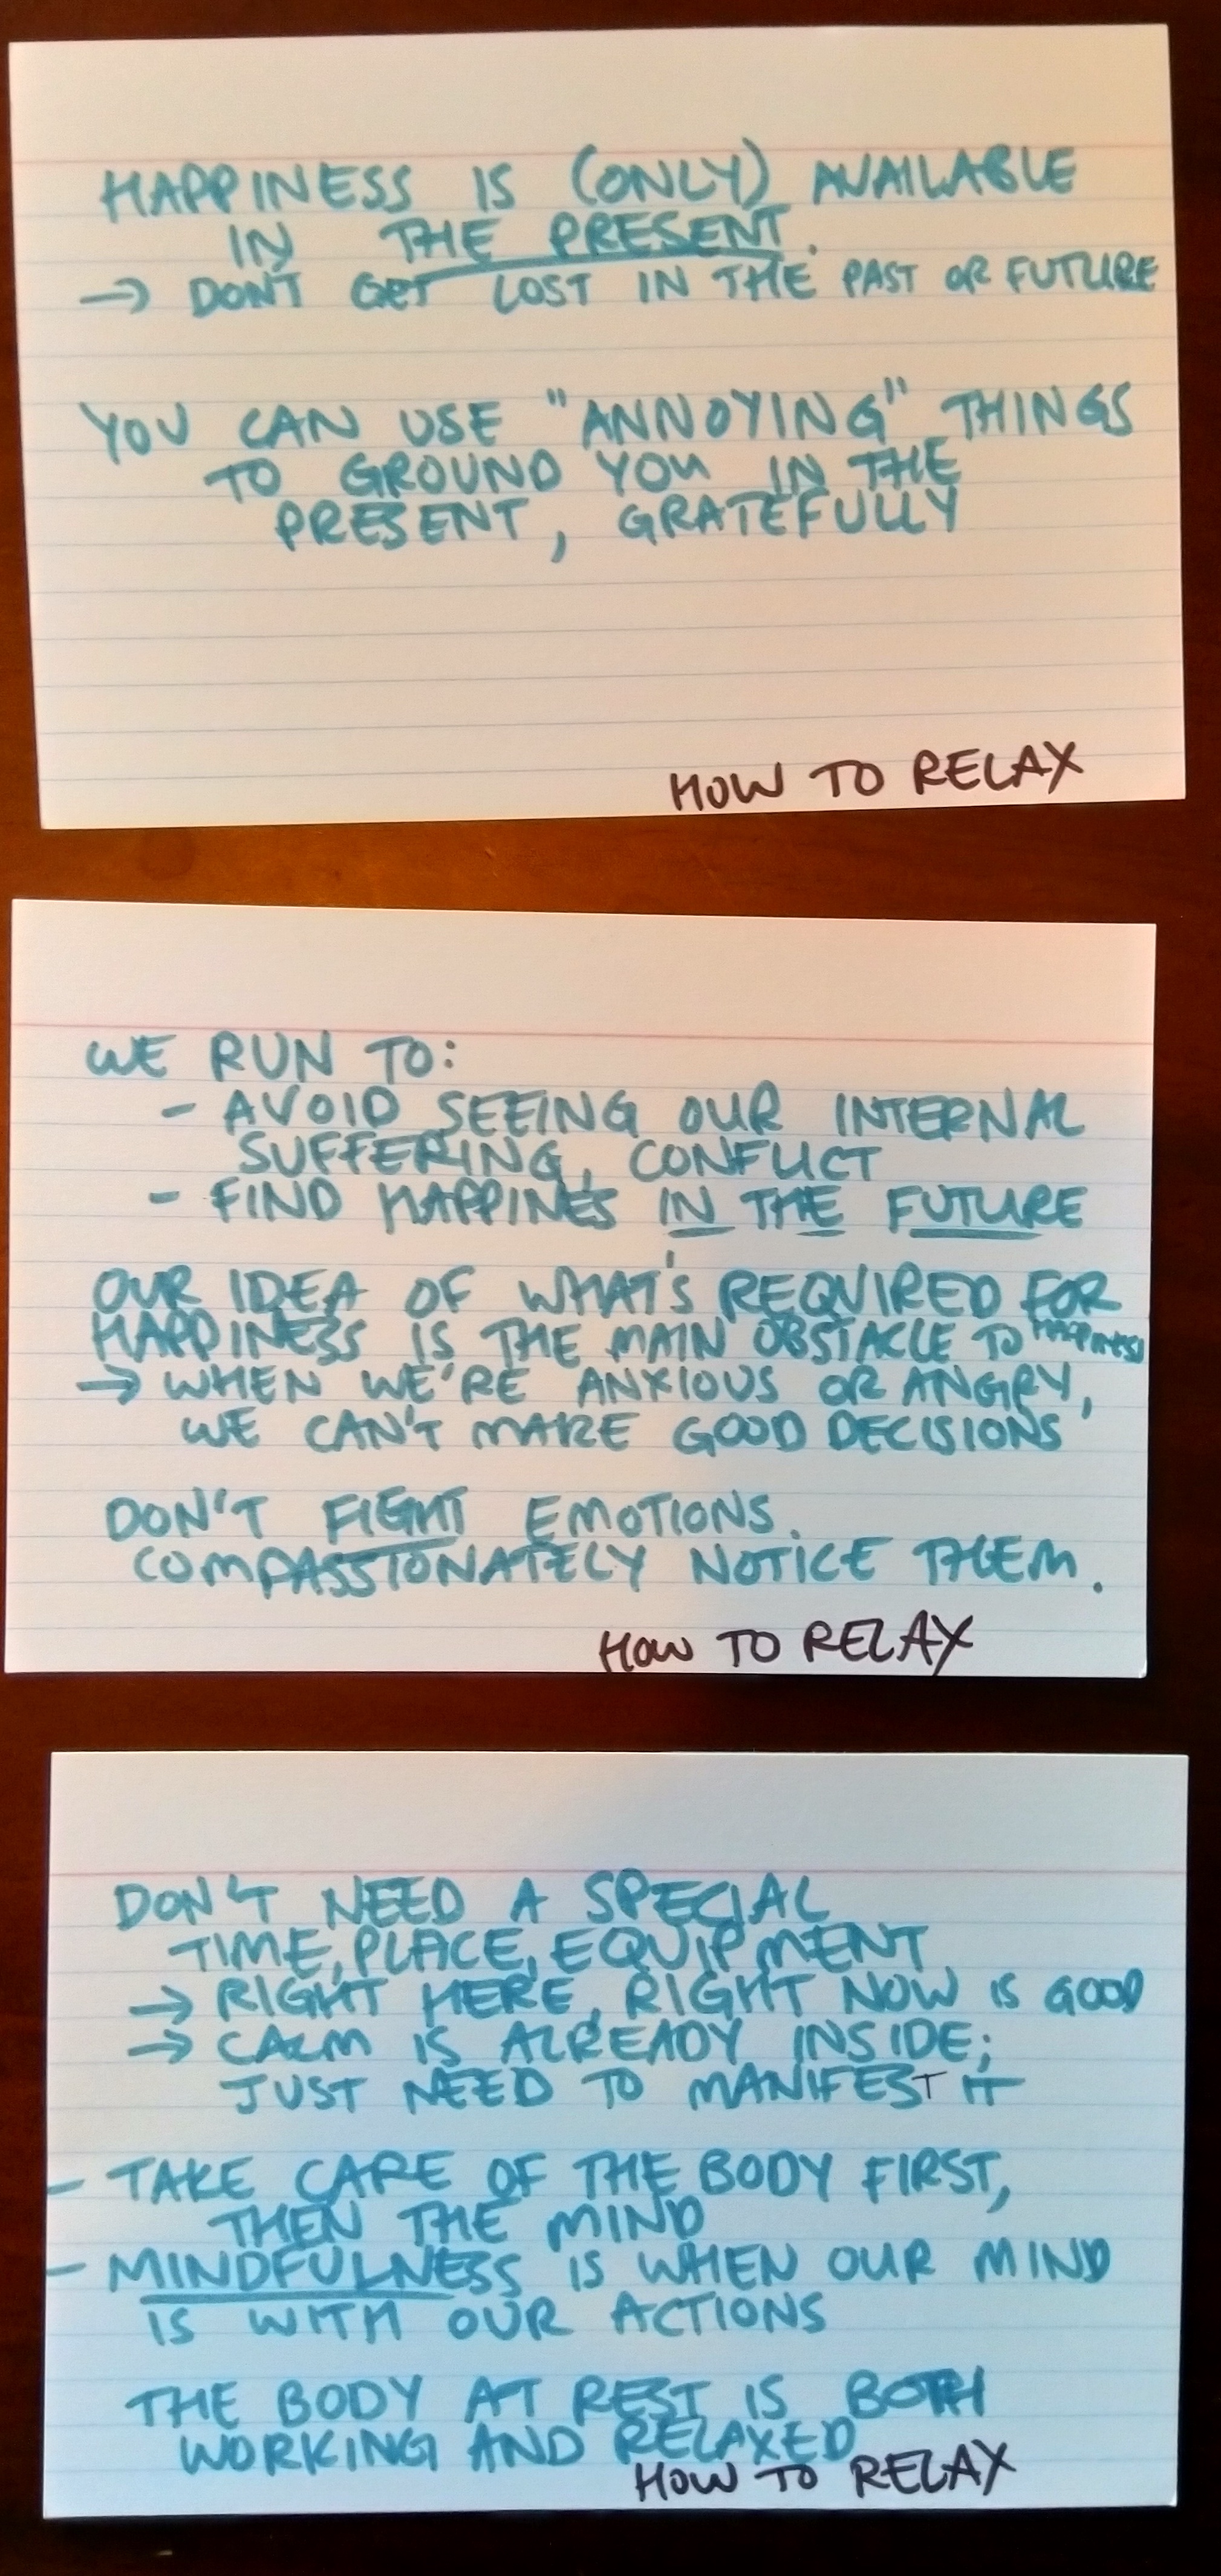 HAPPINESS IS (ONLY) AVAILABLE
IN THE PRESENT.
→ DON'T GET LOST IN THE PAST OR FUTURE
YOU CAN USE "ANNOYING" THINGS
TO GROUND YOU IN THE
PRESENT, GRATEFULLY
HOW TO RELAX
WE RUN TO:
- AVOID SEEING OUR INTERNAL
SUFFERING, CONFLICT
- FIND HAPPINES IN THE FUTURE
OUR IDEA OF WHAT'S REQUIRED FOR
HAPPINESS IS THE MAIN OBSTACLE TO HAPPINESS
→ WHEN WE'RE ANXIOUS OR ANGRY,
WE CAN'T MAKE GOOD DECISIONS
DON'T FIGHT EMOTIONS.
COMPASSIONATELY NOTICE THEM.
HOW TO RELAX
DON'T NEED A SPECIAL
TIME, PLACE, EQUIPMENT
→ RIGHT HERE, RIGHT NOW IS GOOD
→ CALM IS ALREADY INSIDE;
JUST NEED TO MANIFEST IT
- TAKE CARE OF THE BODY FIRST,
THEN THE MIND
- MINDFULNESS IS WHEN OUR MIND
IS WITH OUR ACTIONS
THE BODY AT REST IS BOTH
WORKING AND RELAXED
HOW TO RELAX